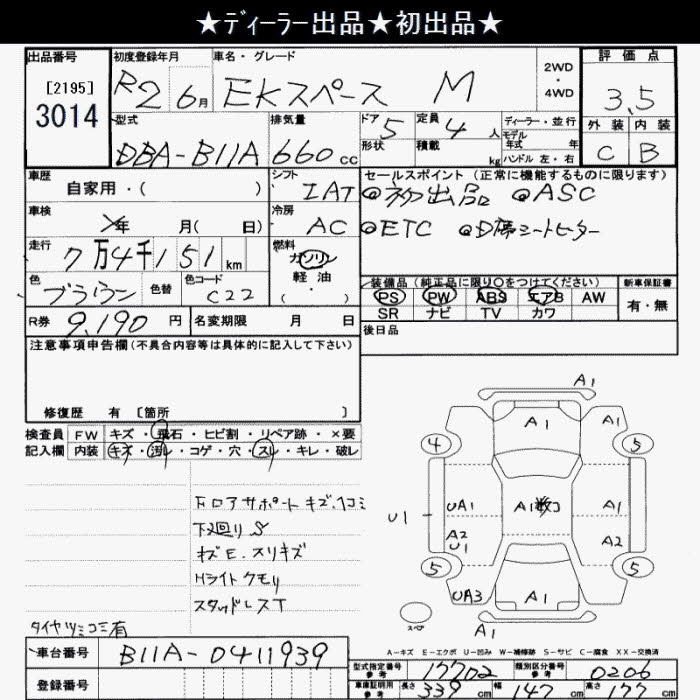 ★ディーラー出品★初出品★
出品番号 初度登録年月 車名・グレード 2WD・4WD 評価点
[2195] 3014 R2 6月 EKスペース M 3.5
型式 排気量 ドア 5 定員 4人 ディーラー・並行 外装 内装
DBA-B11A 660cc 形状 積載 kg モデル年式 年 ハンドル 左・右 C B
車歴 シフト セールスポイント (正常に機能するものに限ります)
自家用・( ) IAT ◎初出品 ◎ASC
車検 年 月( 日) 冷房 AC ◎ETC ◎D席シートヒーター
走行 7万4千151km 燃料 ガソリン
色 ブラウン 色替 色コード C22 軽油 ( ・ ) 装備品 (純正品に限り○をつけてください) 新車保証書
PS PW ABS エアB AW 有・無
R券 9,190円 名変期限 月 日 SR ナビ TV カワ
注意事項申告欄(不具合内容等は具体的に記入して下さい) 後日品
修復歴 有 [箇所 ]
検査員 FW キズ・飛石・ヒビ割・リペア跡・×要
記入欄 内装 キズ・汚レ・コゲ・穴・スレ・キレ・破レ
A1
A1 A1
4 5
UA1 A1 A1
U1
A2 U1 A2
5 5
UA3 A1
A1
スペア
ドロアサポートキズ.凹コミ
下廻りS
キズE.スリキズ
Hライトクモリ
スタッドレスT
タイヤツミコミ有
A-キズ E-エクボ U-凹み W-補修跡 S-サビ C-腐食 XX-交換済
車台番号 B11A-0411939 型式指定番号 参考 17702 類別区分番号 参考 0206
登録番号 車庫証明用 参考 長さ 339cm 幅 147cm 高さ 177cm